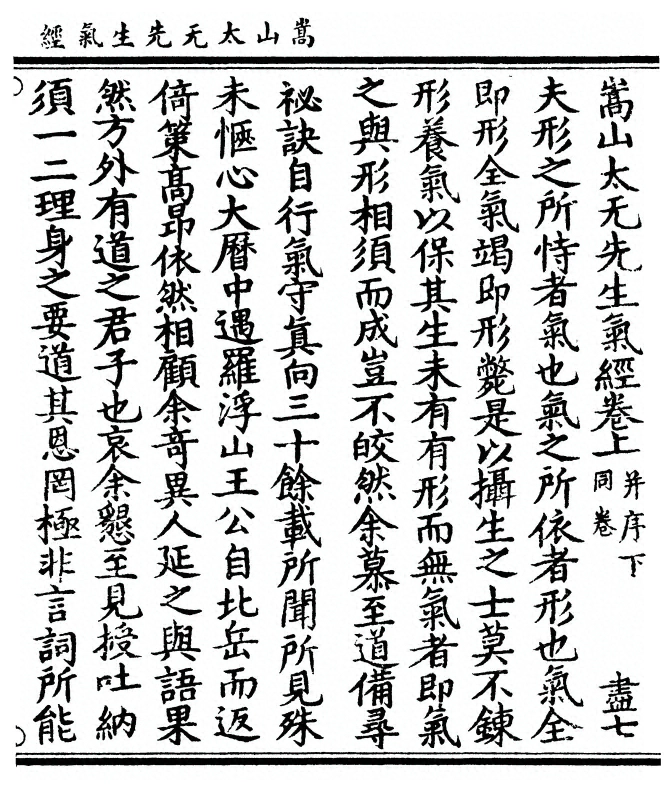 嵩山太无先生氣經
嵩山太无先生氣經卷上 并序下同卷 盡七
夫形之所恃者氣也氣之所依者形也氣全
即形全氣竭即形斃是以攝生之士莫不鍊
形養氣以保其生未有有形而無氣者即氣
之與形相須而成豈不皎然余慕至道備尋
祕訣自行氣守眞向三十餘載所聞所見殊
未愜心大曆中遇羅浮山王公自北岳而返
倚策高昂依然相顧余竒異人延之與語果
然方外有道之君子也哀余懇至見授吐納
須一二理身之要道其恩罔極非言詞所能